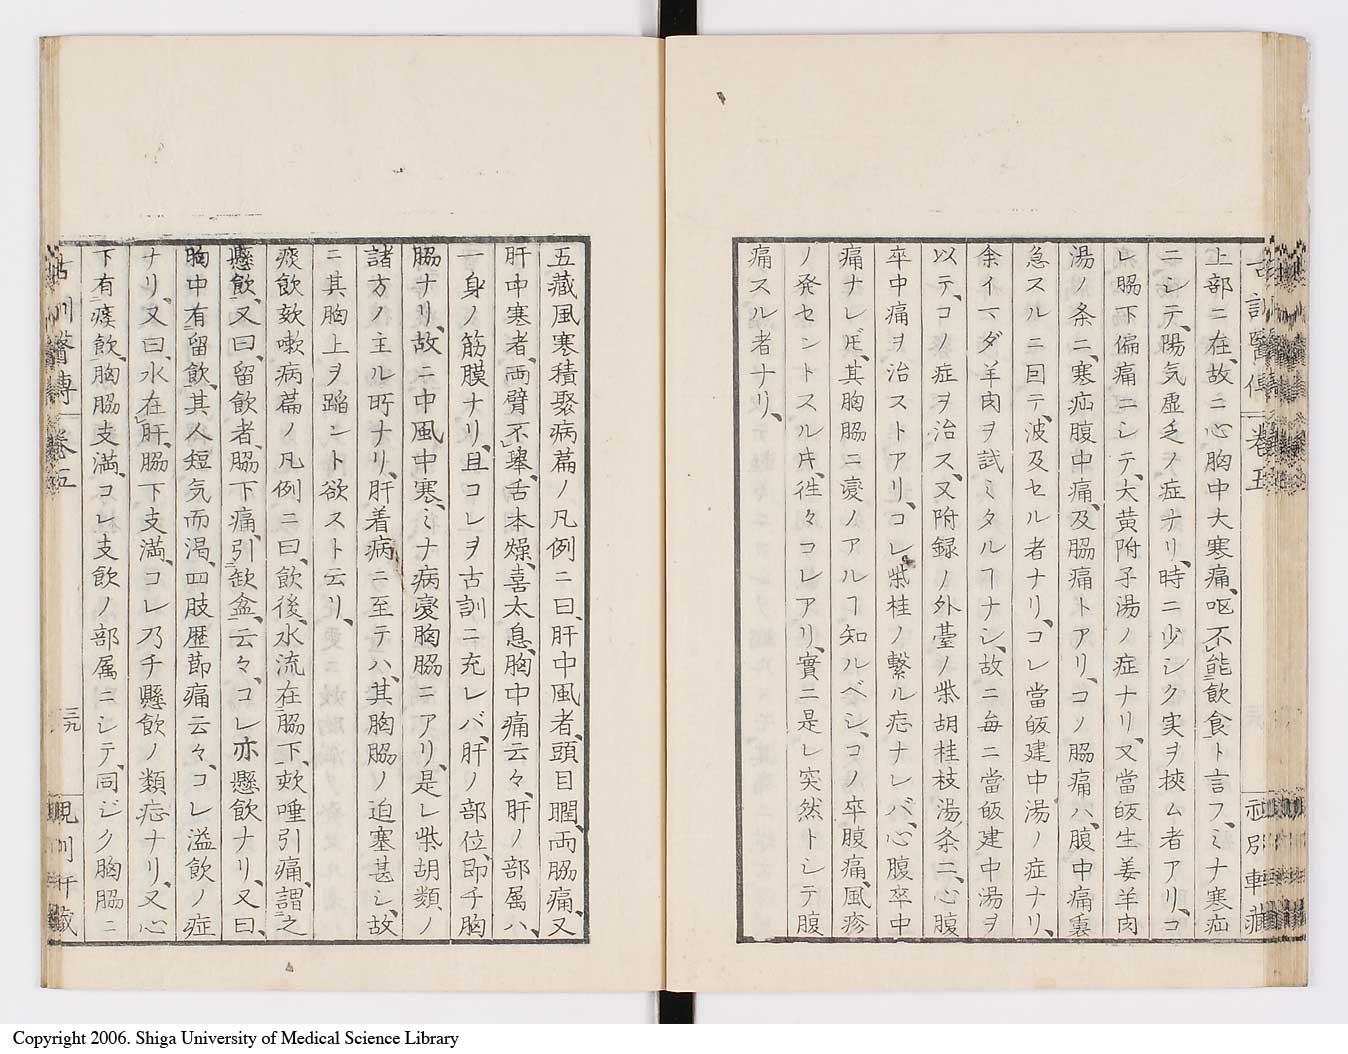 上部ニ在、故ニ心胸中大寒痛、呕不能飲食ト言フ、ミナ寒疝
ニシテ、陽気虚乏ノ症ナリ、時ニ少シク実ヲ挾ム者アリ、コ
レ脇下偏痛ニシテ、大黄附子湯ノ症ナリ、又當皈生姜羊肉
湯ノ条ニ、寒疝腹中痛、及脇痛トアリ、コノ脇痛ハ、腹中痛裏
急スルニ因テ、波及セル者ナリ、コレ當皈建中湯ノ症ナリ、
余イマダ羊肉ヲ試ミタルヿナシ、故ニ毎ニ當皈建中湯ヲ
以テ、コノ症ヲ治ス、又附録ノ外臺ノ柴胡桂枝湯条ニ、心腹
卒中痛ヲ治ストアリ、コレ柴桂ノ繋ル症ナレバ、心腹卒中
痛ナレ𪜈、其胸脇ニ憂ノアルヿ知ルベシ、コノ卒腹痛、風疹
ノ発セントスル𪜈、徃々コレアリ、實ニ是レ突然トシテ腹
痛スル者ナリ、
古訓醫傳 卷五
五藏風寒積聚病篇ノ凡例ニ曰、肝中風者、頭目瞤、両脇痛、又
肝中寒者、両臂不擧、舌本燥、喜太息、胸中痛云々、肝ノ部属ハ、
一身ノ筋膜ナリ、且コレヲ古訓ニ充レバ、肝ノ部位、即チ胸
脇ナリ、故ニ中風中寒、ミナ病憂胸脇ニアリ、是レ柴胡類ノ
諸方ノ主ル所ナリ、肝着病ニ至テハ、其胸脇ノ迫塞甚シ、故
ニ其胸上ヲ蹈ント欲スト云リ、
痰飲欬嗽病篇ノ凡例ニ曰、飲後水流在脇下、欬唾引痛、謂之
懸飲、又曰、留飲者、脇下痛、引缺盆、云々、コレ亦懸飲ナリ、又曰、
胸中有留飲、其人短気而渇、四肢歴節痛云々、コレ溢飲ノ症
ナリ、又曰、水在肝、脇下支満、コレ乃チ懸飲ノ類症ナリ、又心
下有痰飲、胸脇支満、コレ支飲ノ部属ニシテ、同ジク胸脇ニ
古訓醫傳 卷五 三九
Copyright 2006. Shiga University of Medical Science Library